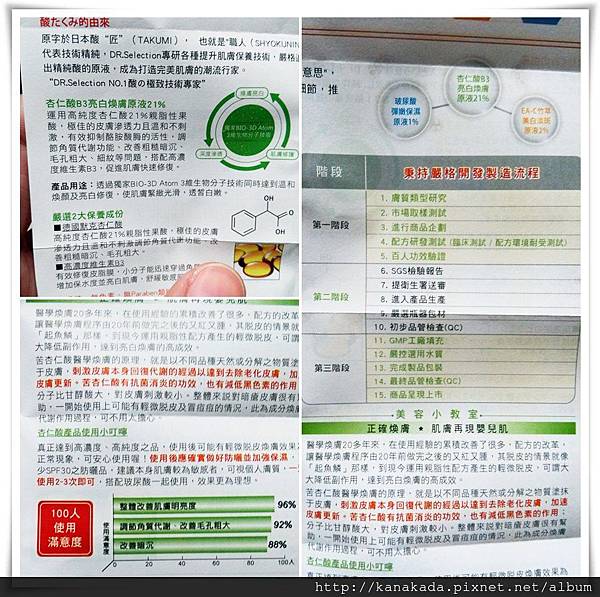 酸たくみ的由來
原字於日本酸“匠”（TAKUMI）， 也就是“職人（SHYOKUNIN
代表技術精純，DR.Selection專研各種提升肌膚保養技術，嚴格
出精純酸的原液，成為打造完美肌膚的潮流行家。
“DR.Selection NO.1酸の極致技術專家”
杏仁酸B3亮白煥膚原液21%
運用高純度杏仁酸21%親脂性果
酸，極佳的皮膚滲透力且溫和不刺
激，有效抑制酪胺酸酶的活性，調
節角質代謝功能、改善粗糙暗沉、
毛孔粗大、細紋等問題，搭配高濃
度維生素B3，促進肌膚快速修復。
煥膚亮白
獨家BIO-3D Atom
3維生物分子技術
深度滲透
肌膚修護
產品用途：透過獨家BIO-3D Atom 3維生物分子技術同時達到溫和
煥顏及亮白修復，使肌膚緊緻光滑，透皙白嫩。
嚴選2大保養成份
■德國默克杏仁酸
高純度杏仁酸21%親脂性果酸，極佳的皮膚
滲透力且溫和不刺激調節角質代謝功能、改
善粗糙暗沉、毛孔粗大。
■高濃度維生素B3
有效修復皮脂膜，小分子能迅速穿過角質
增加保水度並亮白肌膚，舒緩敏感
OH
OH
O
正確煥膚 ★ 肌膚再現嬰兒肌
醫學煥膚20多年來，在使用經驗的累積改善了很多，配方的改革
讓醫學煥膚程序由20年前做完之後的又紅又腫，其脫皮的情景就
「起魚鱗」那樣，到現今運用親脂性配方產生的輕微脫皮，可謂
大降低副作用，達到亮白煥膚的高成效。
苦杏仁酸醫學煥膚的原理，就是以不同品種天然或分解之物質塗
於皮膚，刺激皮膚本身回復代謝的經過以達到去除老化皮膚，加
皮膚更新。苦杏仁酸有抗菌消炎的功效，也有減低黑色素的作用
分子比甘醇酸大，對皮膚刺激較小。整體來說對暗瘡皮膚很有
助，一開始使用上可能有輕微脫皮及冒痘痘的情況，此為成分煥
代謝作用過程，可不用太擔心。
杏仁酸產品使用小叮嚀
真正達到高濃度、高純度之品，使用後可能有輕微脫皮煥膚效果
正常現象，可安心使用喔！使用後應確實做好防曬並加強保濕，
少SPF30之防曬品，建議本身肌膚較為敏感者，可視個人膚質，一
使用2-3次即可，搭配玻尿酸一起使用，效果更為理想。
100人
使用
滿意度
使用滿意度
整體改善肌膚明亮度 96%
調節角質代謝、改善毛孔粗大 92%
改善暗沉 88%
意思”，
細節，推
玻尿酸
彈嫩保濕
原液1%
杏仁酸B3
亮白煥膚
原液21%
EA-C竹萃
美白淡斑
原液2%
階段 秉持嚴格開發製造流程
第一階段
1. 膚質類型研究
2. 市場取樣測試
3. 進行商品企劃
4. 配方研發測試（臨床測試 / 配方環境耐受測試）
5. 百人功效驗證
第二階段
6. SGS檢驗報告
7. 提衛生署送審
8. 進入產品生產
9. 嚴選瓶器包材
10. 初步品管檢查(QC)
第三階段
11. GMP工廠填充
12. 嚴控選用水質
13. 完成製品包裝
14. 最終品管檢查(QC)
15. 商品呈現上市
美容小教室
正確煥膚 ★ 肌膚再現嬰兒肌
醫學煥膚20多年來，在使用經驗的累積改善了很多，配方的改革，
讓醫學煥膚程序由20年前做完之後的又紅又腫，其脫皮的情景就像
「起魚鱗」那樣，到現今運用親脂性配方產生的輕微脫皮，可謂大
大降低副作用，達到亮白煥膚的高成效。
苦杏仁酸醫學煥膚的原理，就是以不同品種天然或分解之物質塗抹
于皮膚，刺激皮膚本身回復代謝的經過以達到去除老化皮膚，加速
皮膚更新。苦杏仁酸有抗菌消炎的功效，也有減低黑色素的作用；
分子比甘醇酸大，對皮膚刺激較小。整體來說對暗瘡皮膚很有幫
助，一開始使用上可能有輕微脫皮及冒痘痘的情況，此為成分煥膚
代謝作用過程，可不用太擔心。
杏仁酸產品使用小叮嚀
http://kanakada.pixnet.net/album